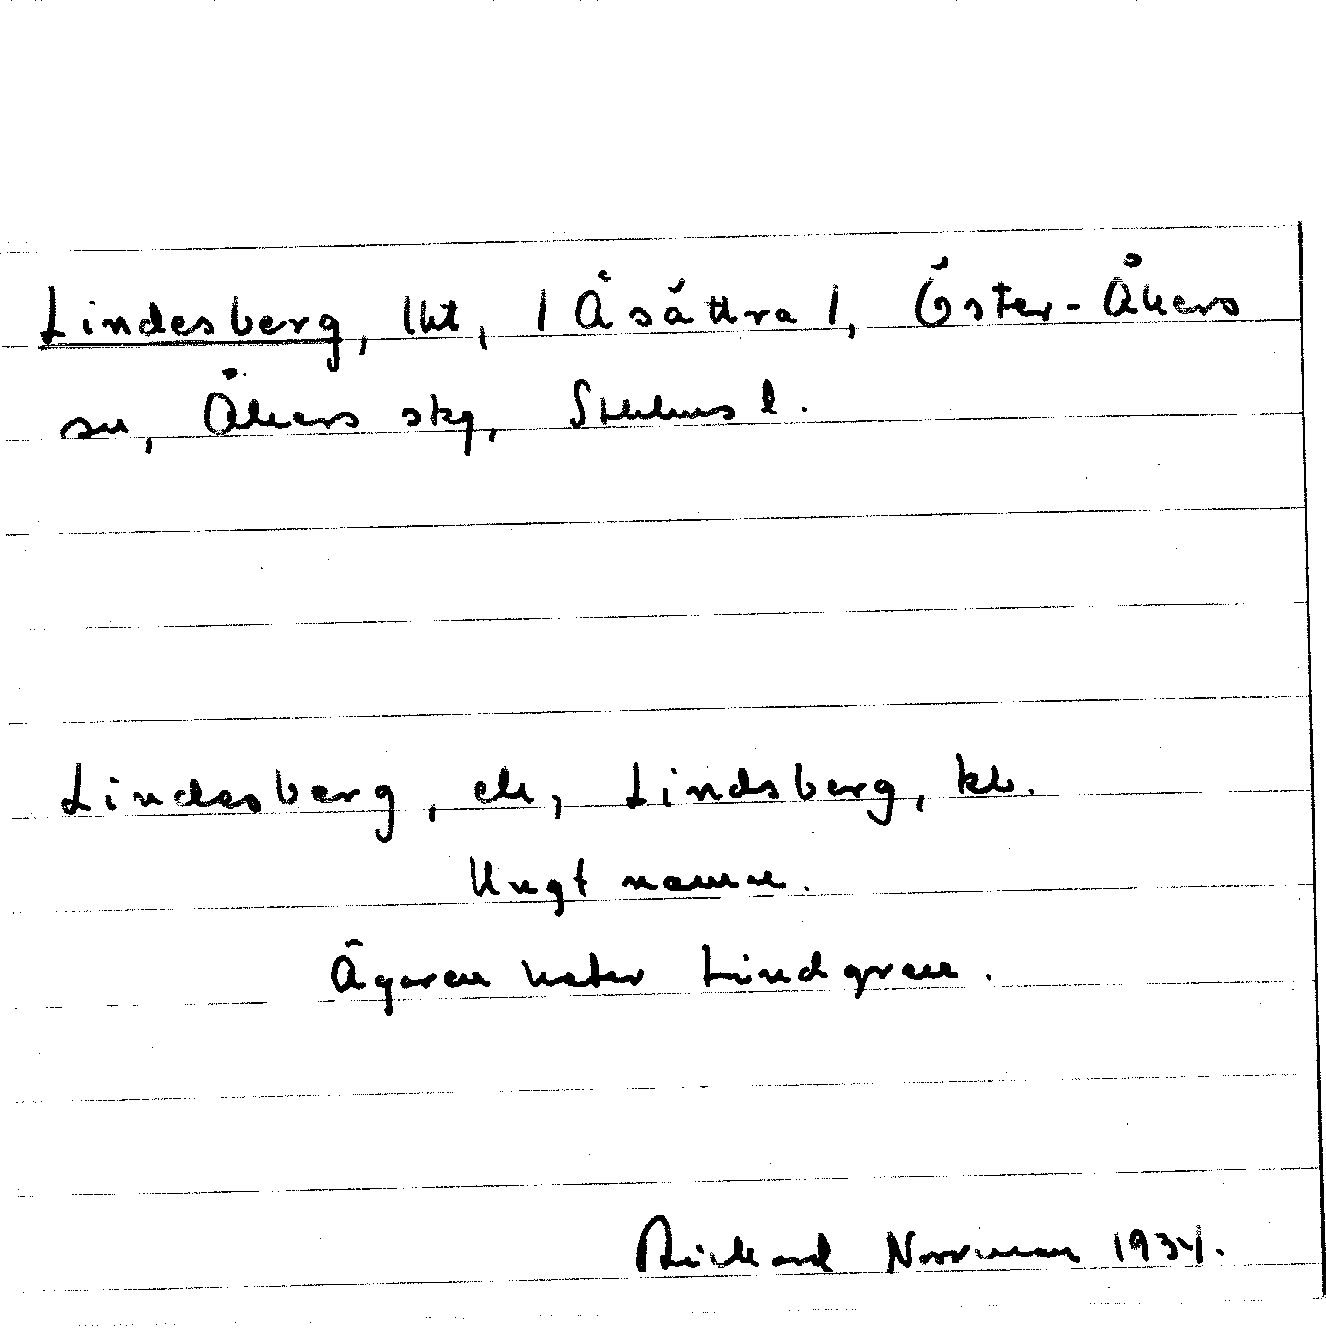 Lindesberg, lht, /Åsättra/, Öster-Åkers
sn, Åkers skg, Sthlms l.
Lindesberg, ek, Lindsberg, kb.
Ungt namn.
Ägaren heter Lindgren.
Rickard Norrman 1934.